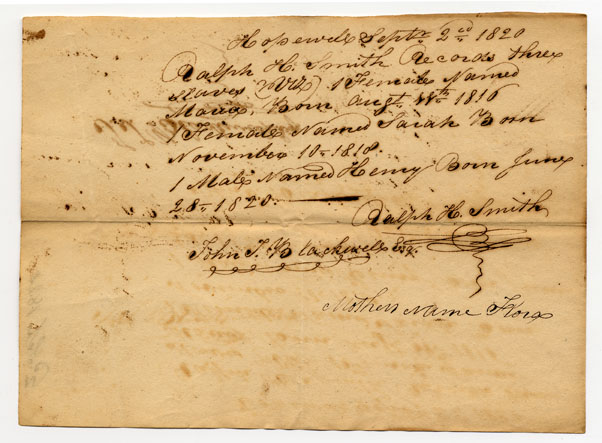 Hopewell Septr. 2nd. 1820
Ralph H. Smith Records three
slaves (viz) 1 Female Named
Maria, Born augt. 11th 1816
1 Female Named Sarah Born
November 10- 1818.
1 Male Named Henry Born June
28- 1820.
Ralph H. Smith
John T. Blackwell Esq.
Mothers Name Flora